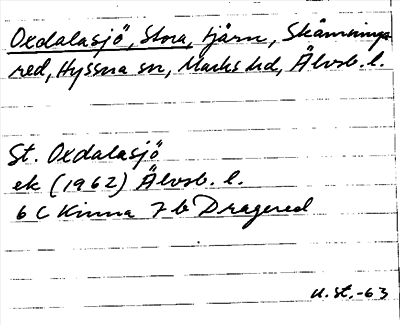 Oxdalasjö, Stora, tjärn, Skämnings-
red, Hyssna sn, Marks hd, Älvsb. l.
St. Oxdalasjö
ek (1962) Älvsb. l.
6 C Kinna 7 b Dragered
U. St. -63